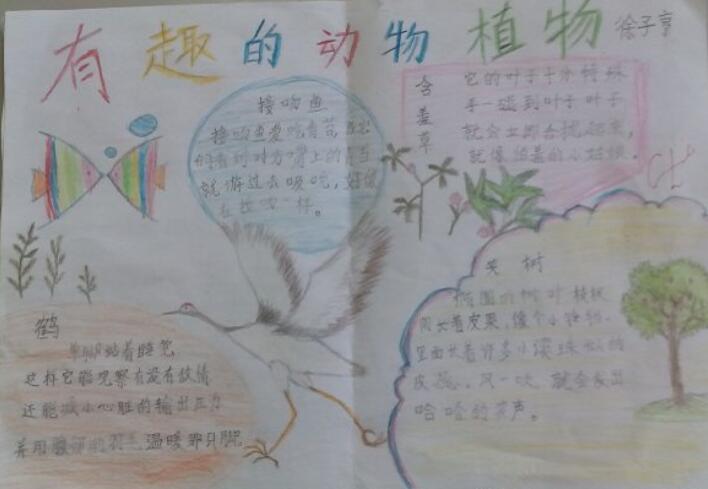 有趣的动物植物
徐子亨
接吻鱼
接吻鱼爱吃青苔
们看到对方嘴上的青苔
就游过去吸吃，好像
在接吻一样。
含羞草
它的叶子十分特殊
手一碰到叶子 叶子
就会立即合拢起来，
就像 害羞的小姑娘。
鹤
单脚站着睡觉
这样它能观察有没有敌情
还能减小心脏的输出压力
并用腹部的羽毛温暖那只脚
笑树
树叶
间长着皮果，像个小铃铛
里面长着许多小滚珠似的
皮蕊，风一吹 就会发出
哈哈的笑声。